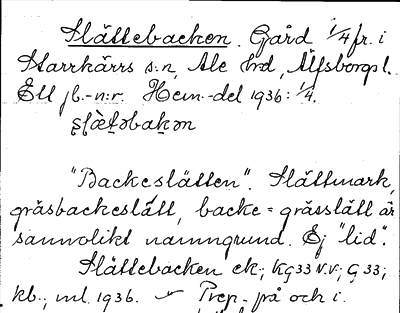 Slättebacken. Gård 1/4 fr. i
Starrkärrs s:n, Ale hrd, Älfsborgs l.
Ett jb.-n:r. Hem.-del 1936: 1/4.
"Backeslätten". Slättmark,
gräsbackeslätt, backe = grässlätt är
sannolikt namngrund. Ej "lid".
Slättebacken ek.; KG33 N.V.; G 33;
kb.; ml. 1936. Prep. på och i.